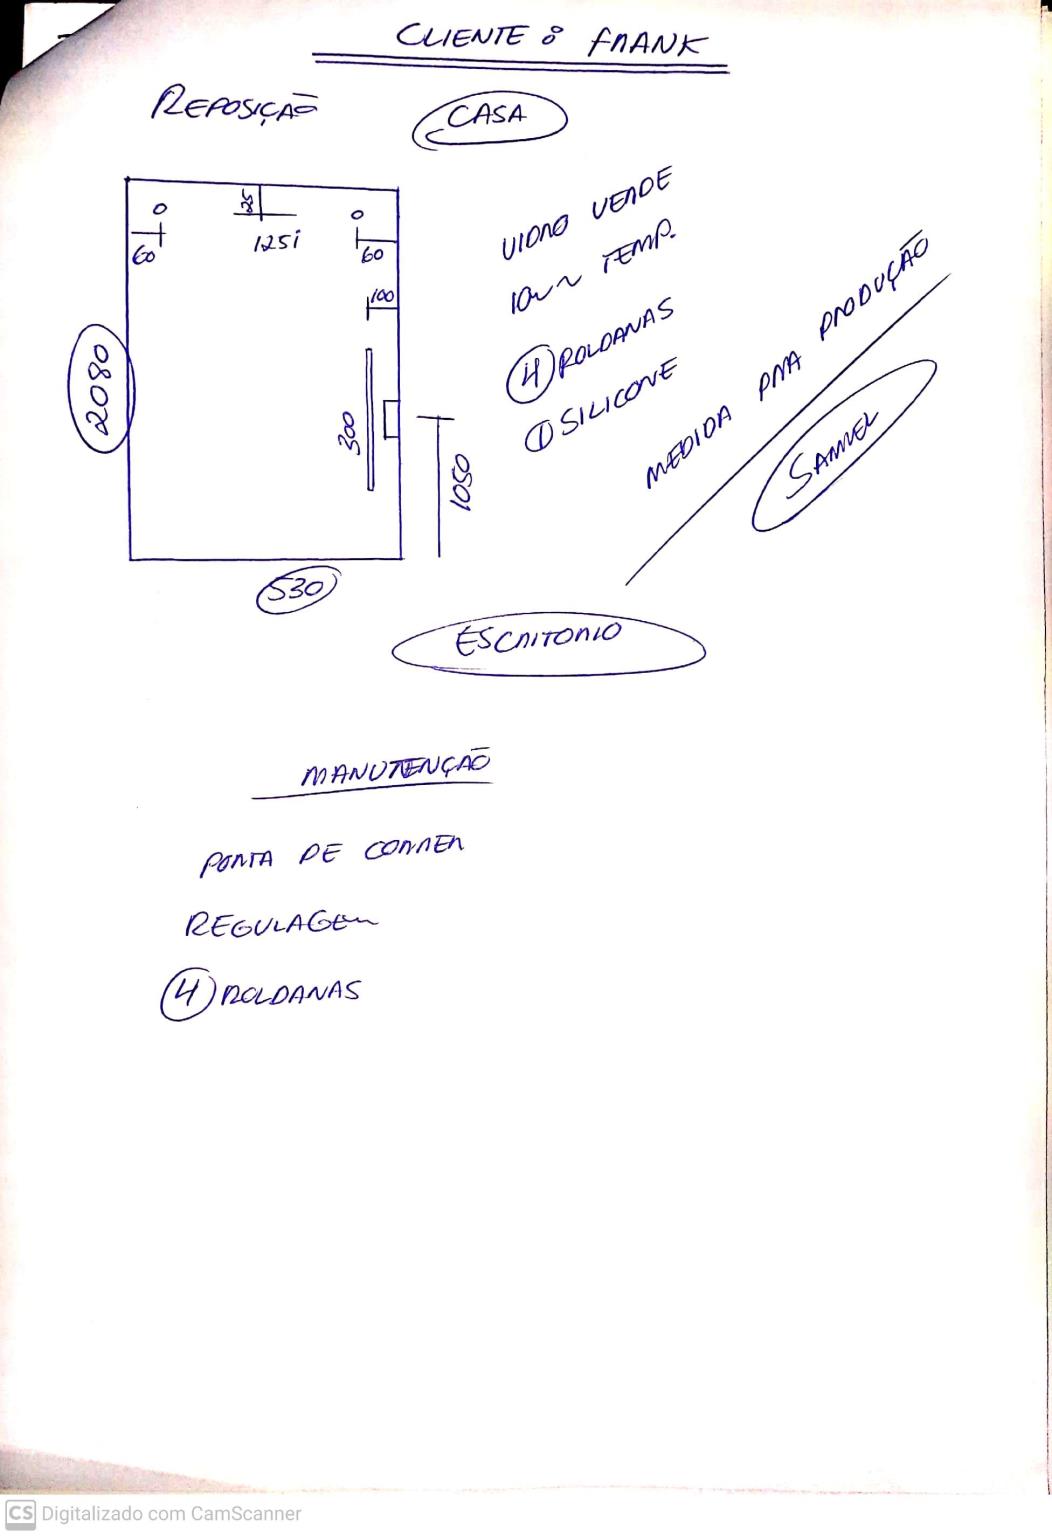 CLIENTE: FRANK
REPOSIÇÃO
CASA
25
125i
60
60
100
2080
300
1050
530
VIDRO VERDE
10mm TEMP.
4 ROLDANAS
1 SILICONE
MEDIDA PRA PRODUÇÃO
SAMUEL
ESCRITORIO
MANUTENÇÃO
PORTA DE CORRER
REGULAGEM
4 ROLDANAS
CS Digitalizado com CamScanner